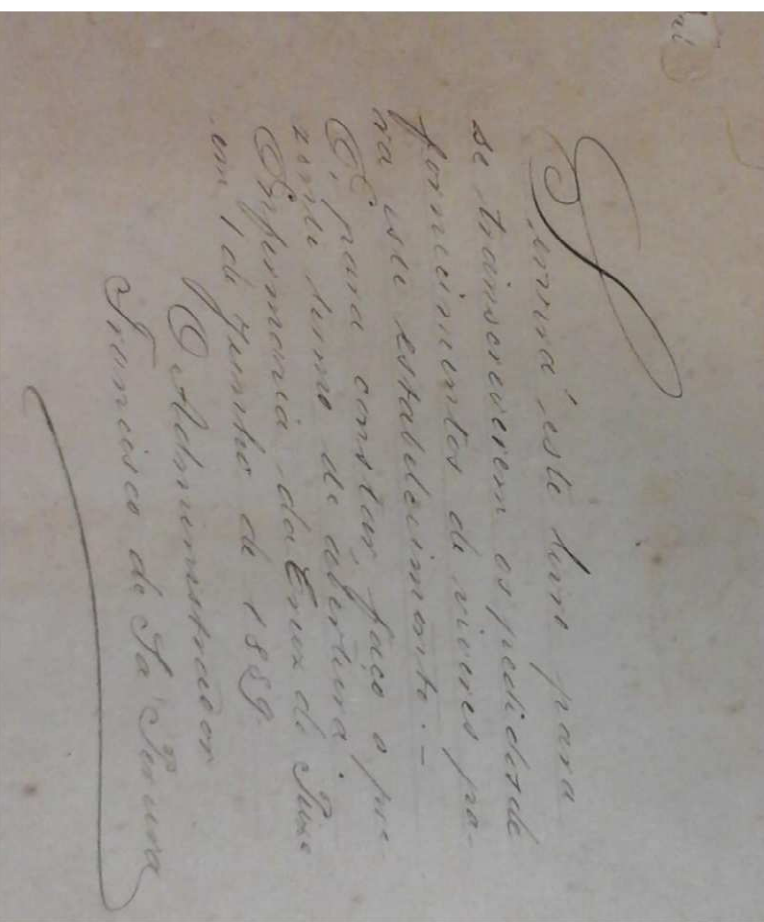 Servirá este livro para
se transcreverem os pedidos de
fornecimentos de viveres pa-
ra este estabelecimento. –
E, para constar, faço o pre-
zente termo de abertura.
Enfermaria da Cruz de Pedra
em 1 de Junho de 1889.
O Administrador
Francisco de Sá Pereira